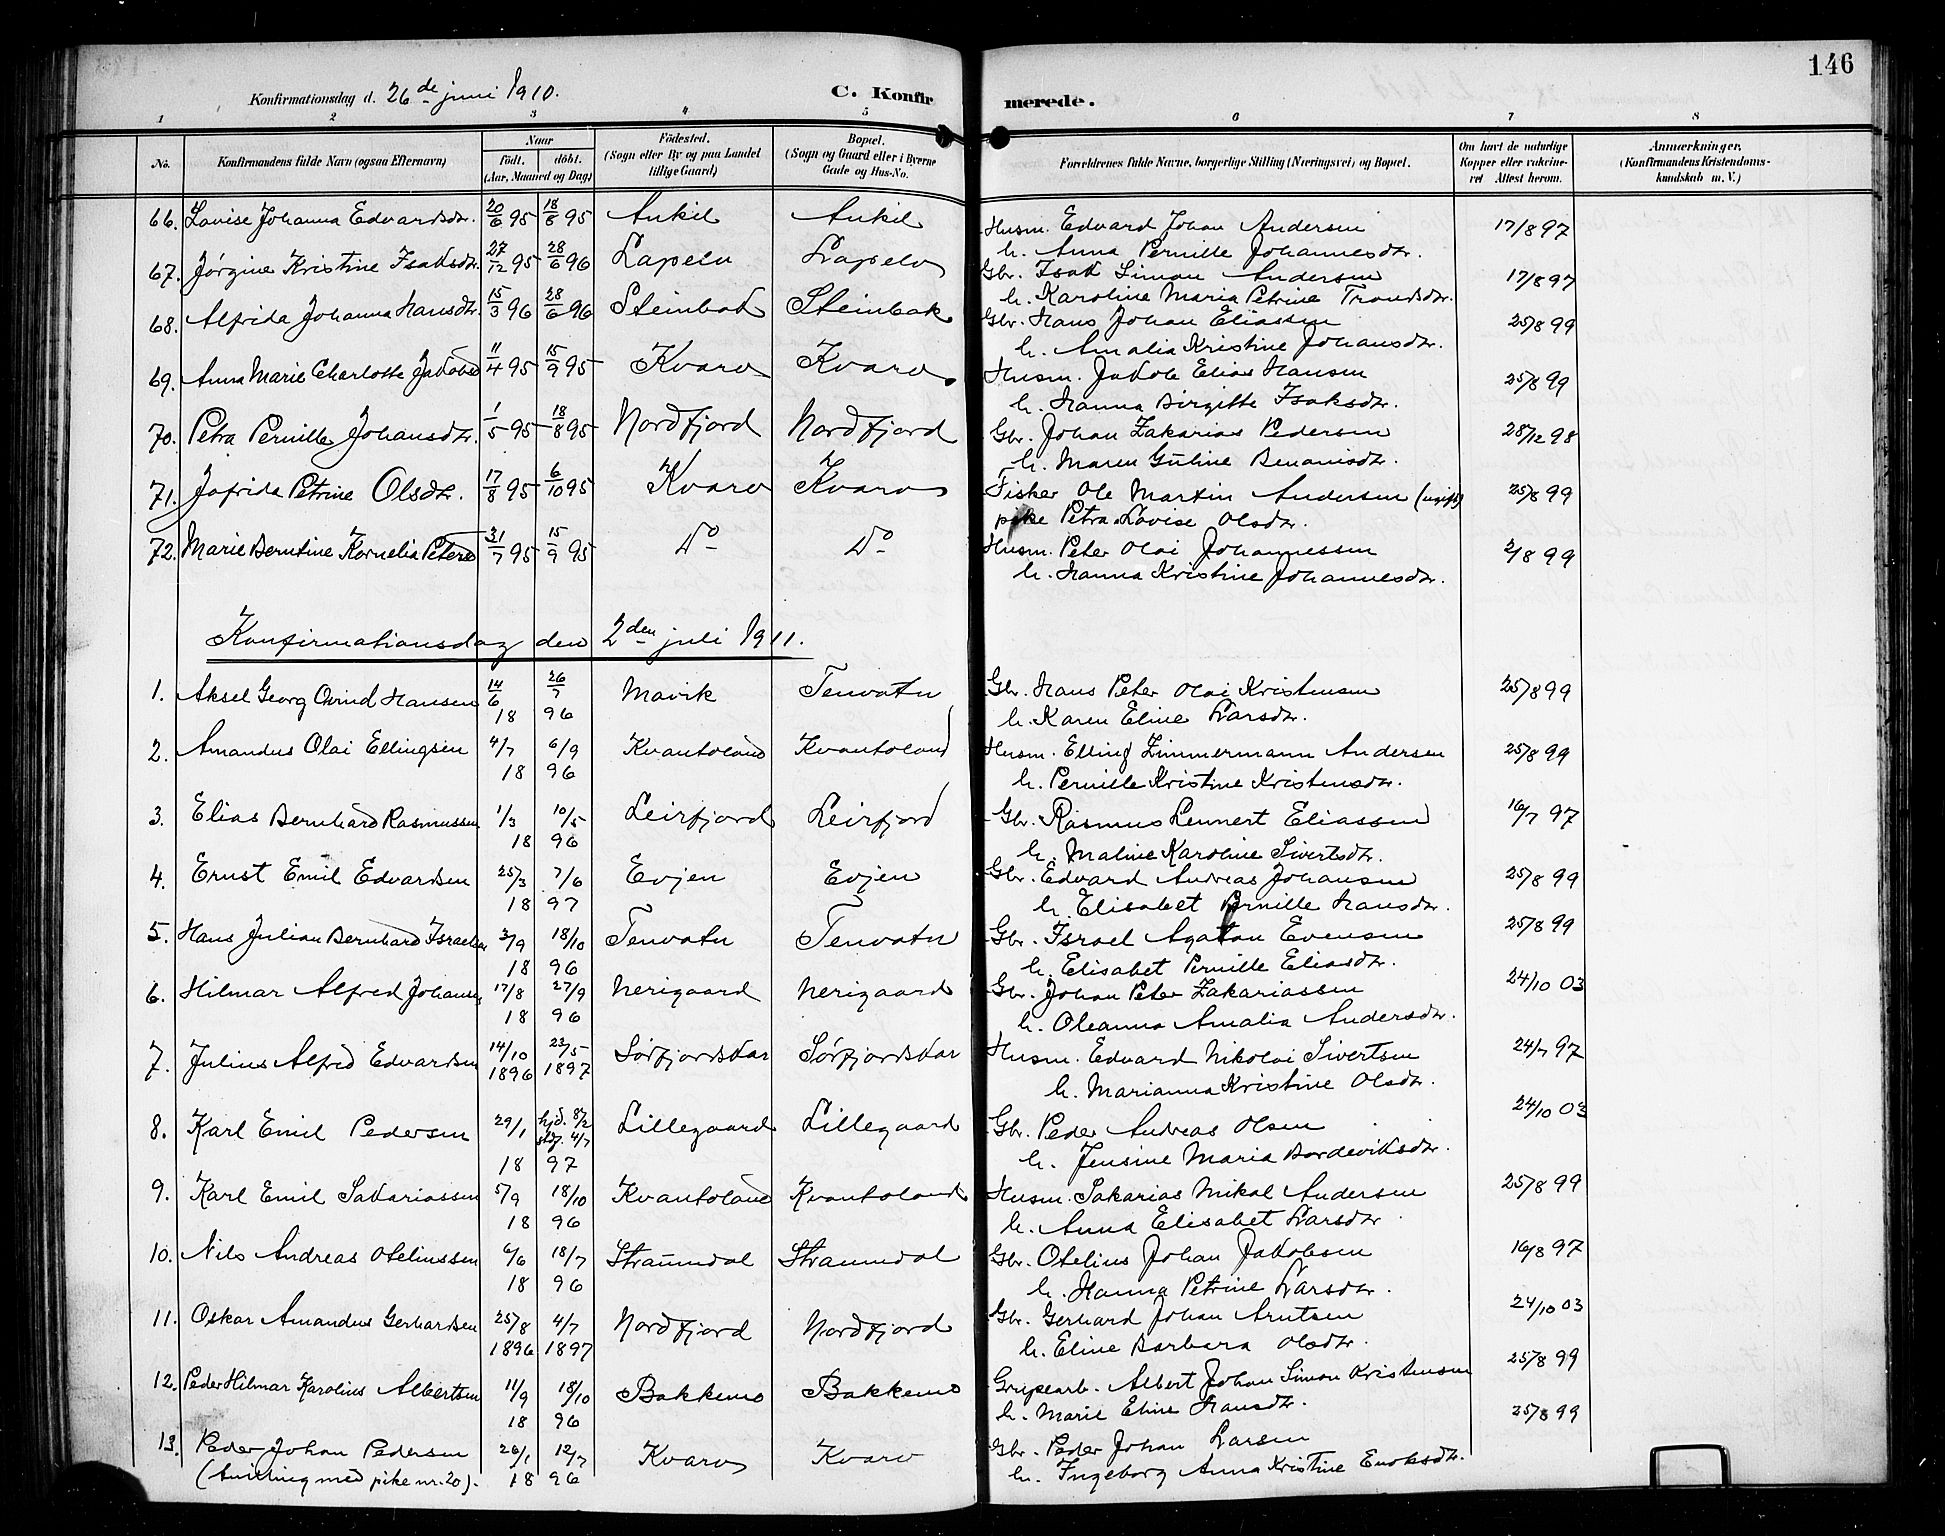 146
Konfirmationsdag d. 26de juni 1910. C. Konfirmerede.
1 2 3 4 5 6 7 8
No. Konfirmandens fulde Navn (ogsaa Efternavn) Naar født. døbt. (Aar, Maaned og Dag) Fødested. (Sogn eller By og paa Landet tillige Gaard) Bopæl. (Sogn og Gaard eller i Byerne Gade og Hus-No. Forældrenes fulde Navne, borgerlige Stilling (Næringsvei) og Bopæl. Om havt de naturlige Kopper eller vakcineret Attest herom. Anmerkninger. (Konfirmandens Kristendomskundskab m. V.)
66. Lovise Johanna Edvardsdtr. 20/6 95 18/8 95 Ankil Ankil Husm. Edvard Johan Andersen 17/8 97
h. Anna Pernille Johannesdtr.
67. Jørgine Kristine Isaksdtr. 27/12 95 28/6 96 Lapelv Lapelv Gbr. Isak Simon Andersen 17/8 97
h. Karoline Maria Petrine Trondsdtr.
68. Alfrida Johanna Hansdtr. 15/3 96 28/6 96 Steinbak Steinbak Gbr. Hans Johan Eliassen 25/8 99
h. Amalia Kristine Johansdtr.
69. Anna Marie Charlotte Jakobsd 11/4 95 15/9 95 Kvarv Kvarv Husm. Jakob Elias Hansen 25/8 99
h. Hanna Birgitte Isaksdtr.
70. Petra Pernille Johansdtr. 1/5 95 18/8 95 Nordfjord Nordfjord Gbr. Johan Zakarias Pedersen 28/12 98
h. Maren Guline Benonisdtr.
71. Jofrida Petrine Olsdtr. 17/8 95 6/10 95 Kvarv Kvarv Fisker Ole Martin Andersen (ugift) 25/8 99
pike Petra Lovise Olsdtr.
72. Marie Berntine Kornelia Petersd 31/7 95 15/9 95 Do Do Husm. Peter Olai Johannessen 2/8 99
h. Hanna Kristine Johannesdtr.
Konfirmationsdag den 2den juli 1911.
1. Aksel Georg Ovind Hansen 14/6 26/7 Mavik Tenvatn Gbr. Hans Peter Olai Kristensen 25/8 99
18 96 h. Karen Eline Larsdtr.
2. Amandus Olai Ellingsen 4/7 6/9 Kvantoland Kvantoland Husm. Elling Zimmermann Andersen 25/8 99
18 96 h. Pernille Kristine Kristensdtr.
3. Elias Bernhard Rasmussen 1/3 10/5 Leirfjord Leirfjord Gbr. Rasmus Lennert Eliassen 16/7 97
18 96 h. Maline Karoline Sivertsdtr.
4. Ernst Emil Edvardsen 25/3 7/6 Evjen Evjen Gbr. Edvard Andreas Johansen 25/8 99
18 97 h. Elisabet Pernille Hansdtr.
5. Hans Julian Bernhard Israelsen 3/9 18/10 Tenvatn Tenvatn Gbr. Israel Agaton Evensen 25/8 99
18 96 h. Elisabet Pernille Eliasdtr.
6. Hilmar Alfred Johansen 17/8 27/9 Nerigaard Nerigaard Gbr. Johan Peter Zakariassen 24/10 03
18 96 h. Oleanna Amalia Andersdtr.
7. Julius Alfred Edvardsen 14/10 23/5 Sørfjordskar Sørfjordskar Husm. Edvard Nikolai Sivertsen 24/7 97
1896 1897 h. Marianna Kristine Olsdtr.
8. Karl Emil Pedersen 29/1 hjd. 8/2 stdf. 4/7 Lillegaard Lillegaard Gbr. Peder Andreas Olsen 24/10 03
18 97 h. Jensine Maria Bordeviksdtr.
9. Karl Emil Sakariassen 5/9 18/10 Kvantoland Kvantoland Husm. Sakarias Mikal Andersen 25/8 99
18 96 h. Anna Elisabet Larsdtr.
10. Nils Andreas Oteliussen 6/6 18/7 Straumdal Straumdal Gbr. Otelius Johan Jakobsen 16/8 97
18 96 h. Hanna Petrine Larsdtr.
11. Oskar Amandus Gerhardsen 25/8 4/7 Nordfjord Nordfjord Gbr. Gerhard Johan Arntsen 24/10 03
1896 1897 h. Eline Barbara Olsdtr.
12. Peder Hilmar Karolius Albertsen 11/9 18/10 Bakkemo Bakkemo Grupearb. Albert Johan Simon Kristensen 25/8 99
18 96 h. Marie Eline Hansdtr.
13. Peder Johan Pedersen 26/1 12/7 Kvarv Kvarv Gbr. Peder Johan Larsen 25/8 99
(tvilling med pike nr. 20). 18 96 h. Ingeborg Anna Kristine Enoksdtr.